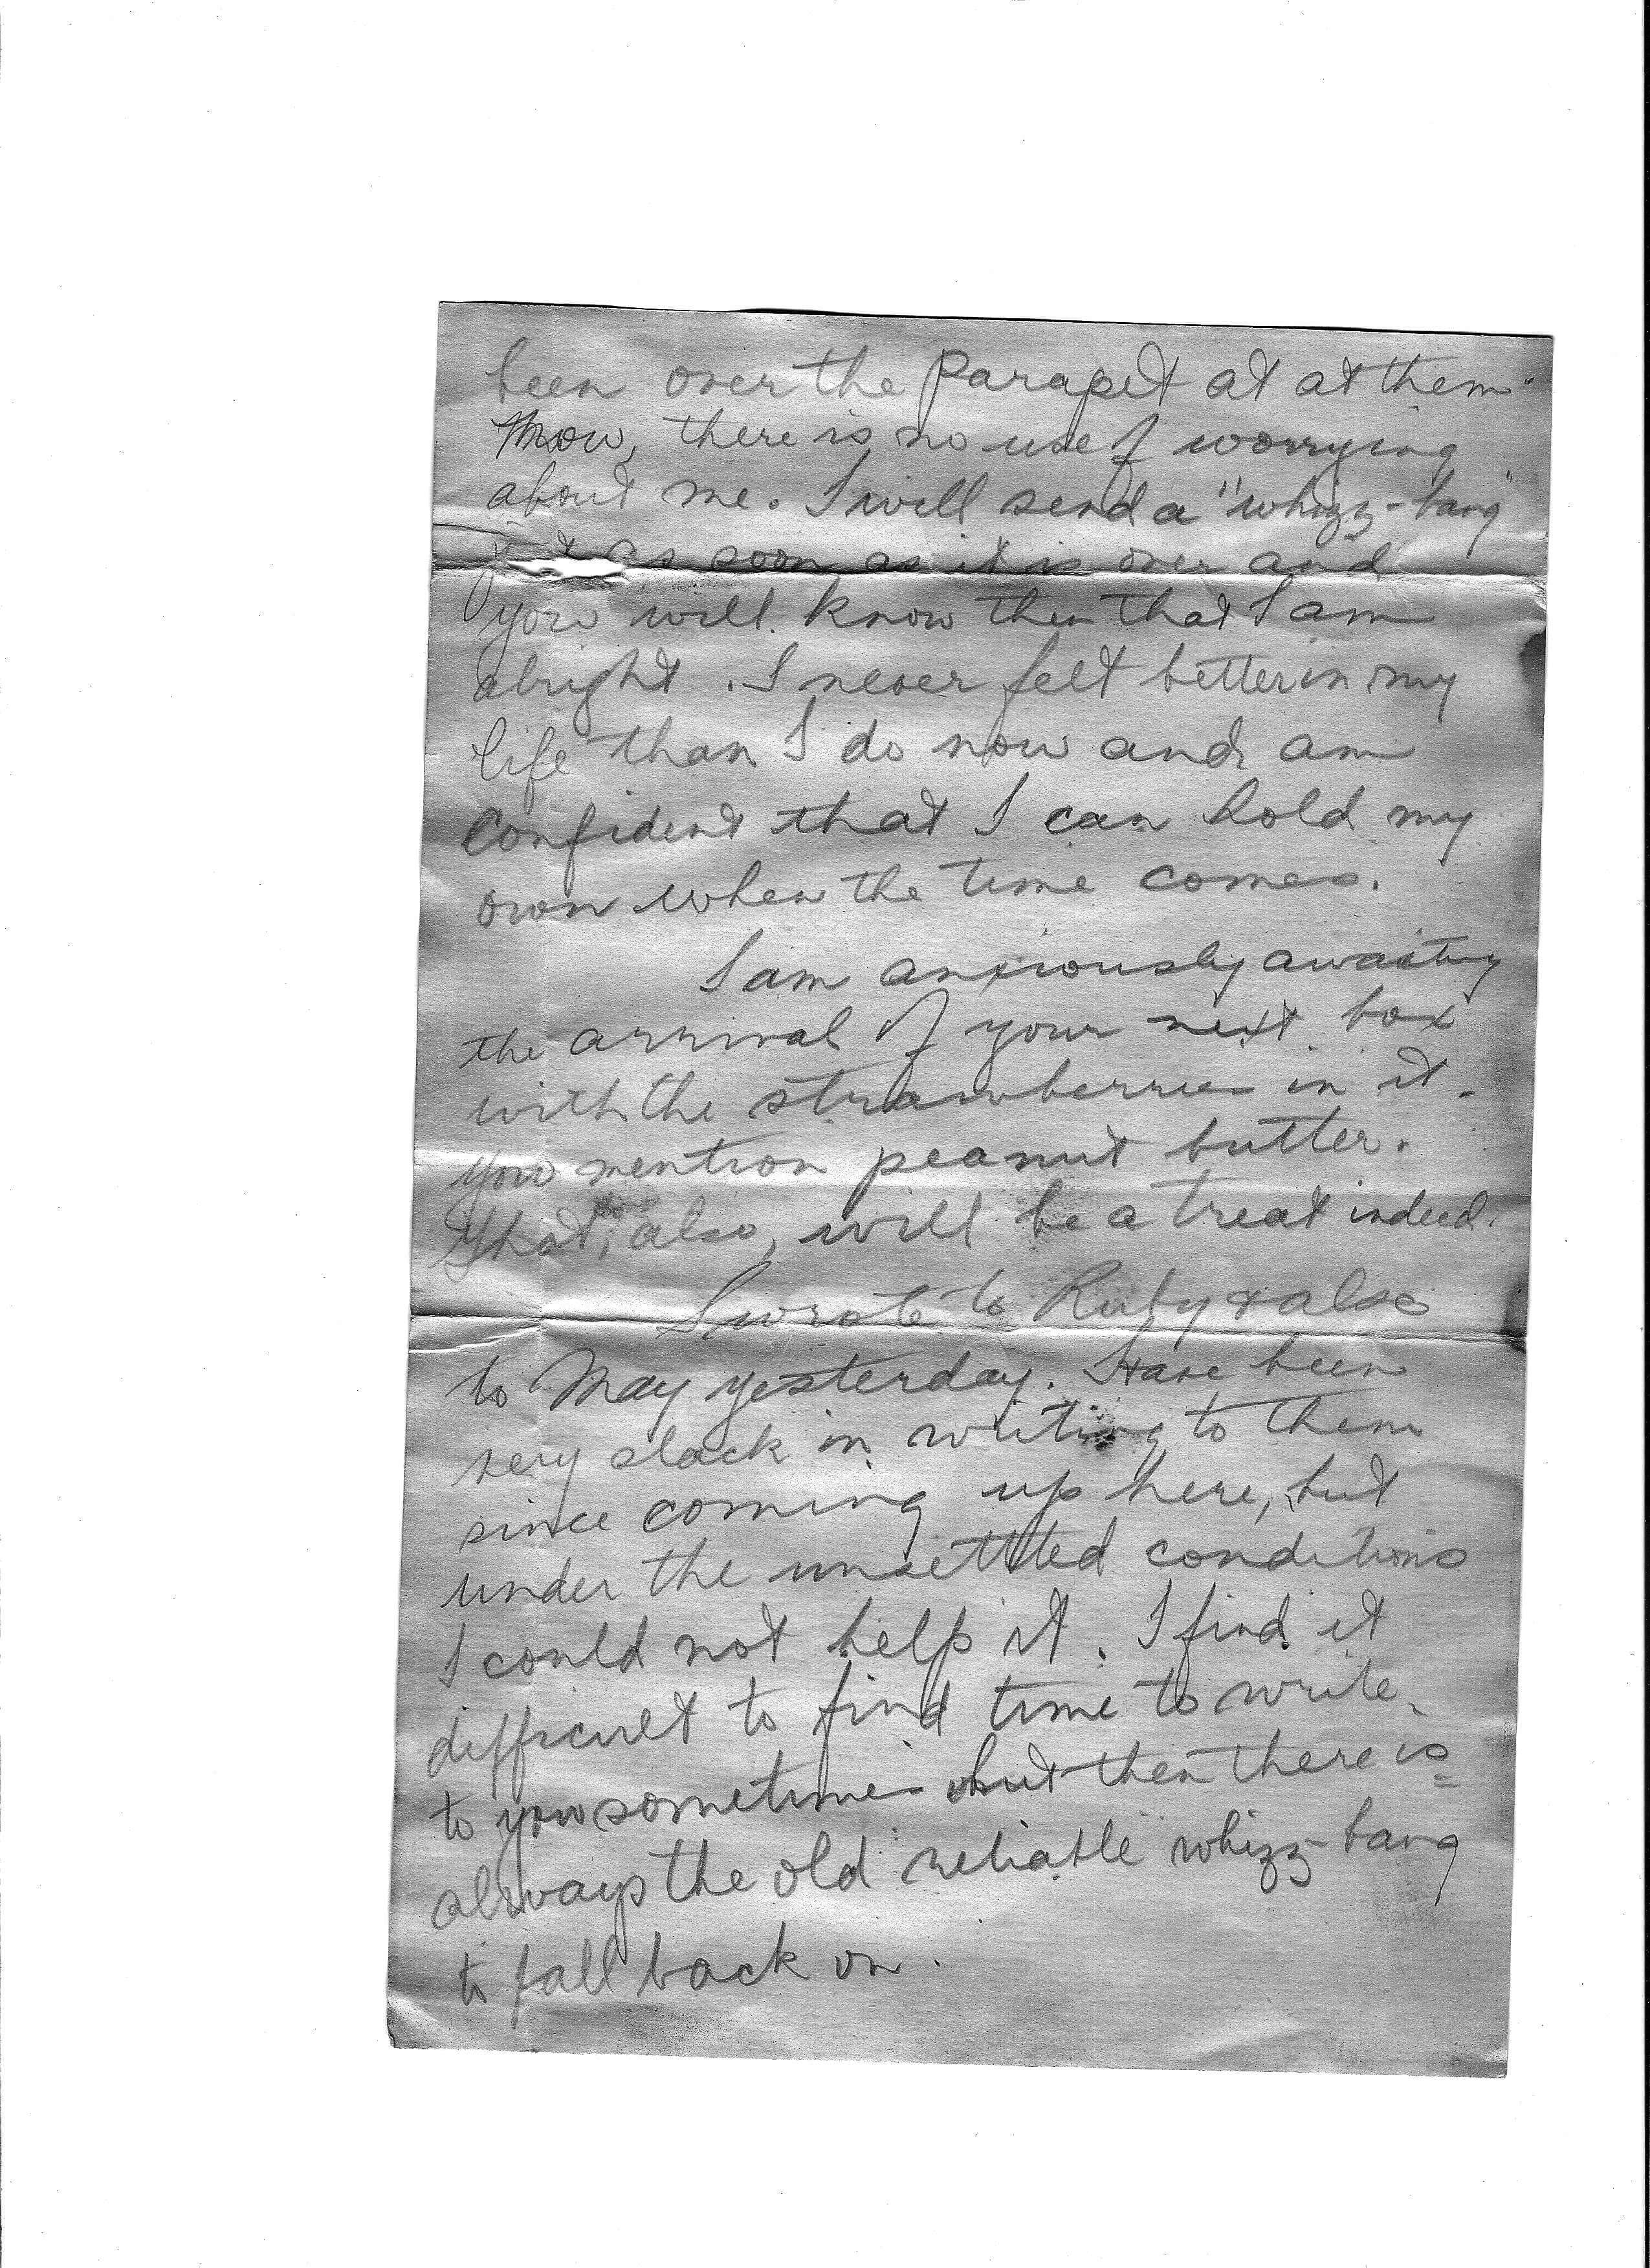 been over the Parapet at at them
Now, there is no use of worrying
about me. I will send a "whizz-bang"
as soon as it is over and
you will know then that I am
alright. I never felt better in my
life than I do now and am
confident that I can hold my
own when the time comes.
I am anxiously awaiting
the arrival of your next box
with the strawberries in it.
You mention peanut butter.
That, also, will be a treat indeed.
I wrote to Ruby & also
to May yesterday. Have been
very slack in writing to them
since coming up here, but
under the unsettled conditions
I could not help it. I find it
difficult to find time to write
to you sometimes but then there is
always the old reliable whizz-bang
to fall back on.